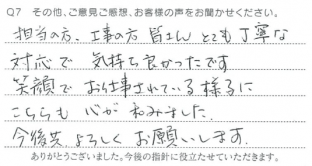 Q7 その他、ご意見ご感想、お客様の声をお聞かせください。
担当の方、工事の方 皆さん とても丁寧な
対応で 気持ち良かったです
笑顔で お仕事されている様子に
こちらも 心が 和みました。
今後共、よろしく お願いします。
ありがとうございました。今後の指針に役立たせていただきます。